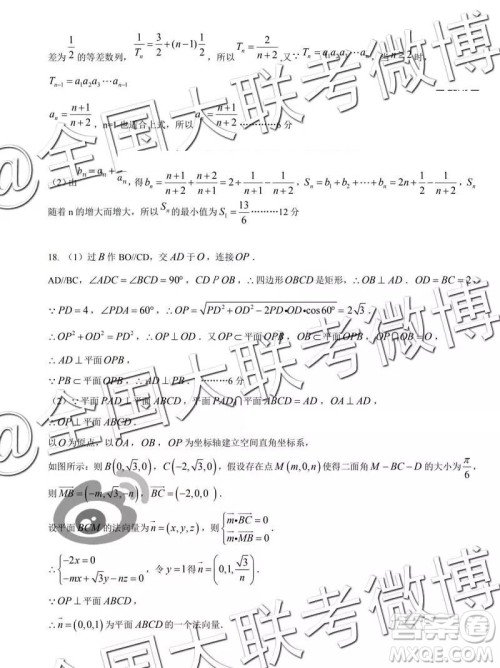 差为 1/2 的等差数列, 1/Tₙ = 3/2 + (n−1) 1/2, 所以 Tₙ = 2/(n+2), 又∵ Tₙ = a₁a₂a₃ ⋯aₙ
Tₙ₋₁ = a₁a₂a₃ ⋯aₙ₋₁
aₙ = (n+1)/(n+2), n=1也适合上式, 所以 aₙ = (n+1)/(n+2) …………6 分
(2)由 bₙ = aₙ + 1/aₙ, 得 bₙ = (n+1)/(n+2) + (n+2)/(n+1) = 2 + 1/(n+1) − 1/(n+2), Sₙ = b₁ + b₂ + ⋯ + bₙ = 2n + 1/2 − 1/(n+2), Sₙ
随着 n 的增大而增大, 所以 Sₙ 的最小值为 S₁ = 13/6 ………12 分
18. (1)过 B 作 BO//CD, 交 AD 于 O, 连接 OP.
AD//BC, ∠ADC = ∠BCD = 90°, CD P OB, ∴四边形 OBCD 是矩形, ∴OD = BC = 2.
∵PD = 4, ∠PDA = 60°, ∴OP = √(PD² + OD² − 2PD•OD•cos60°) = 2√3.
∴OP² + OD² = PD², ∴OD ⊥ OP. 又OP ⊂ 平面OPB, OB ⊂ 平面OPB, OP∩OB = O,
∴AD ⊥ 平面OPB,
∵PB ⊂ 平面OPB, ∴AD ⊥ PB. ………6 分
(2)∵平面PAD ⊥ 平面ABCD, 平面PAD∩平面ABCD = AD, OP ⊥ AD,
∴OP ⊥ 平面ABCD.
以 O 为原点, 以 OA, OB, OP 为坐标轴建立空间直角坐标系,
如图所示: 则 B(0,√3,0), C(−2,√3,0), 假设存在点 M(m,0,n) 使得二面角 M−BC−D 的大小为 π/6,
则 MB = (−m,√3,−n), BC = (−2,0,0).
设平面 BCM 的法向量为 n = (x,y,z), 则 { m•BC = 0
m•MB = 0
∴ { −2x = 0
−mx + √3y − nz = 0, 令 y=1 得 n = (0,1,√3/n).
∵OP ⊥ 平面 ABCD,
∴n = (0,0,1) 为平面 ABCD 的一个法向量.
@全国大联考微博
@全国大联考微博
答案圈